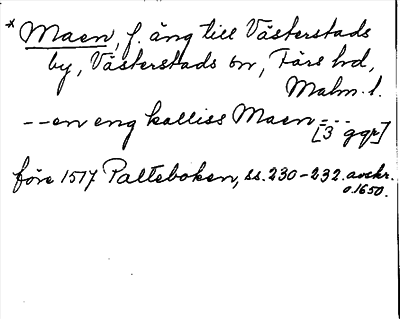 * Maen, f. äng till Västerstads
by, Västerstads sn, Färs hd,
Malm. l.
--en eng kalliss Maen ---
[3 ggr]
före 1517 Palteboken, ss. 230-232. avskr.
o. 1650.